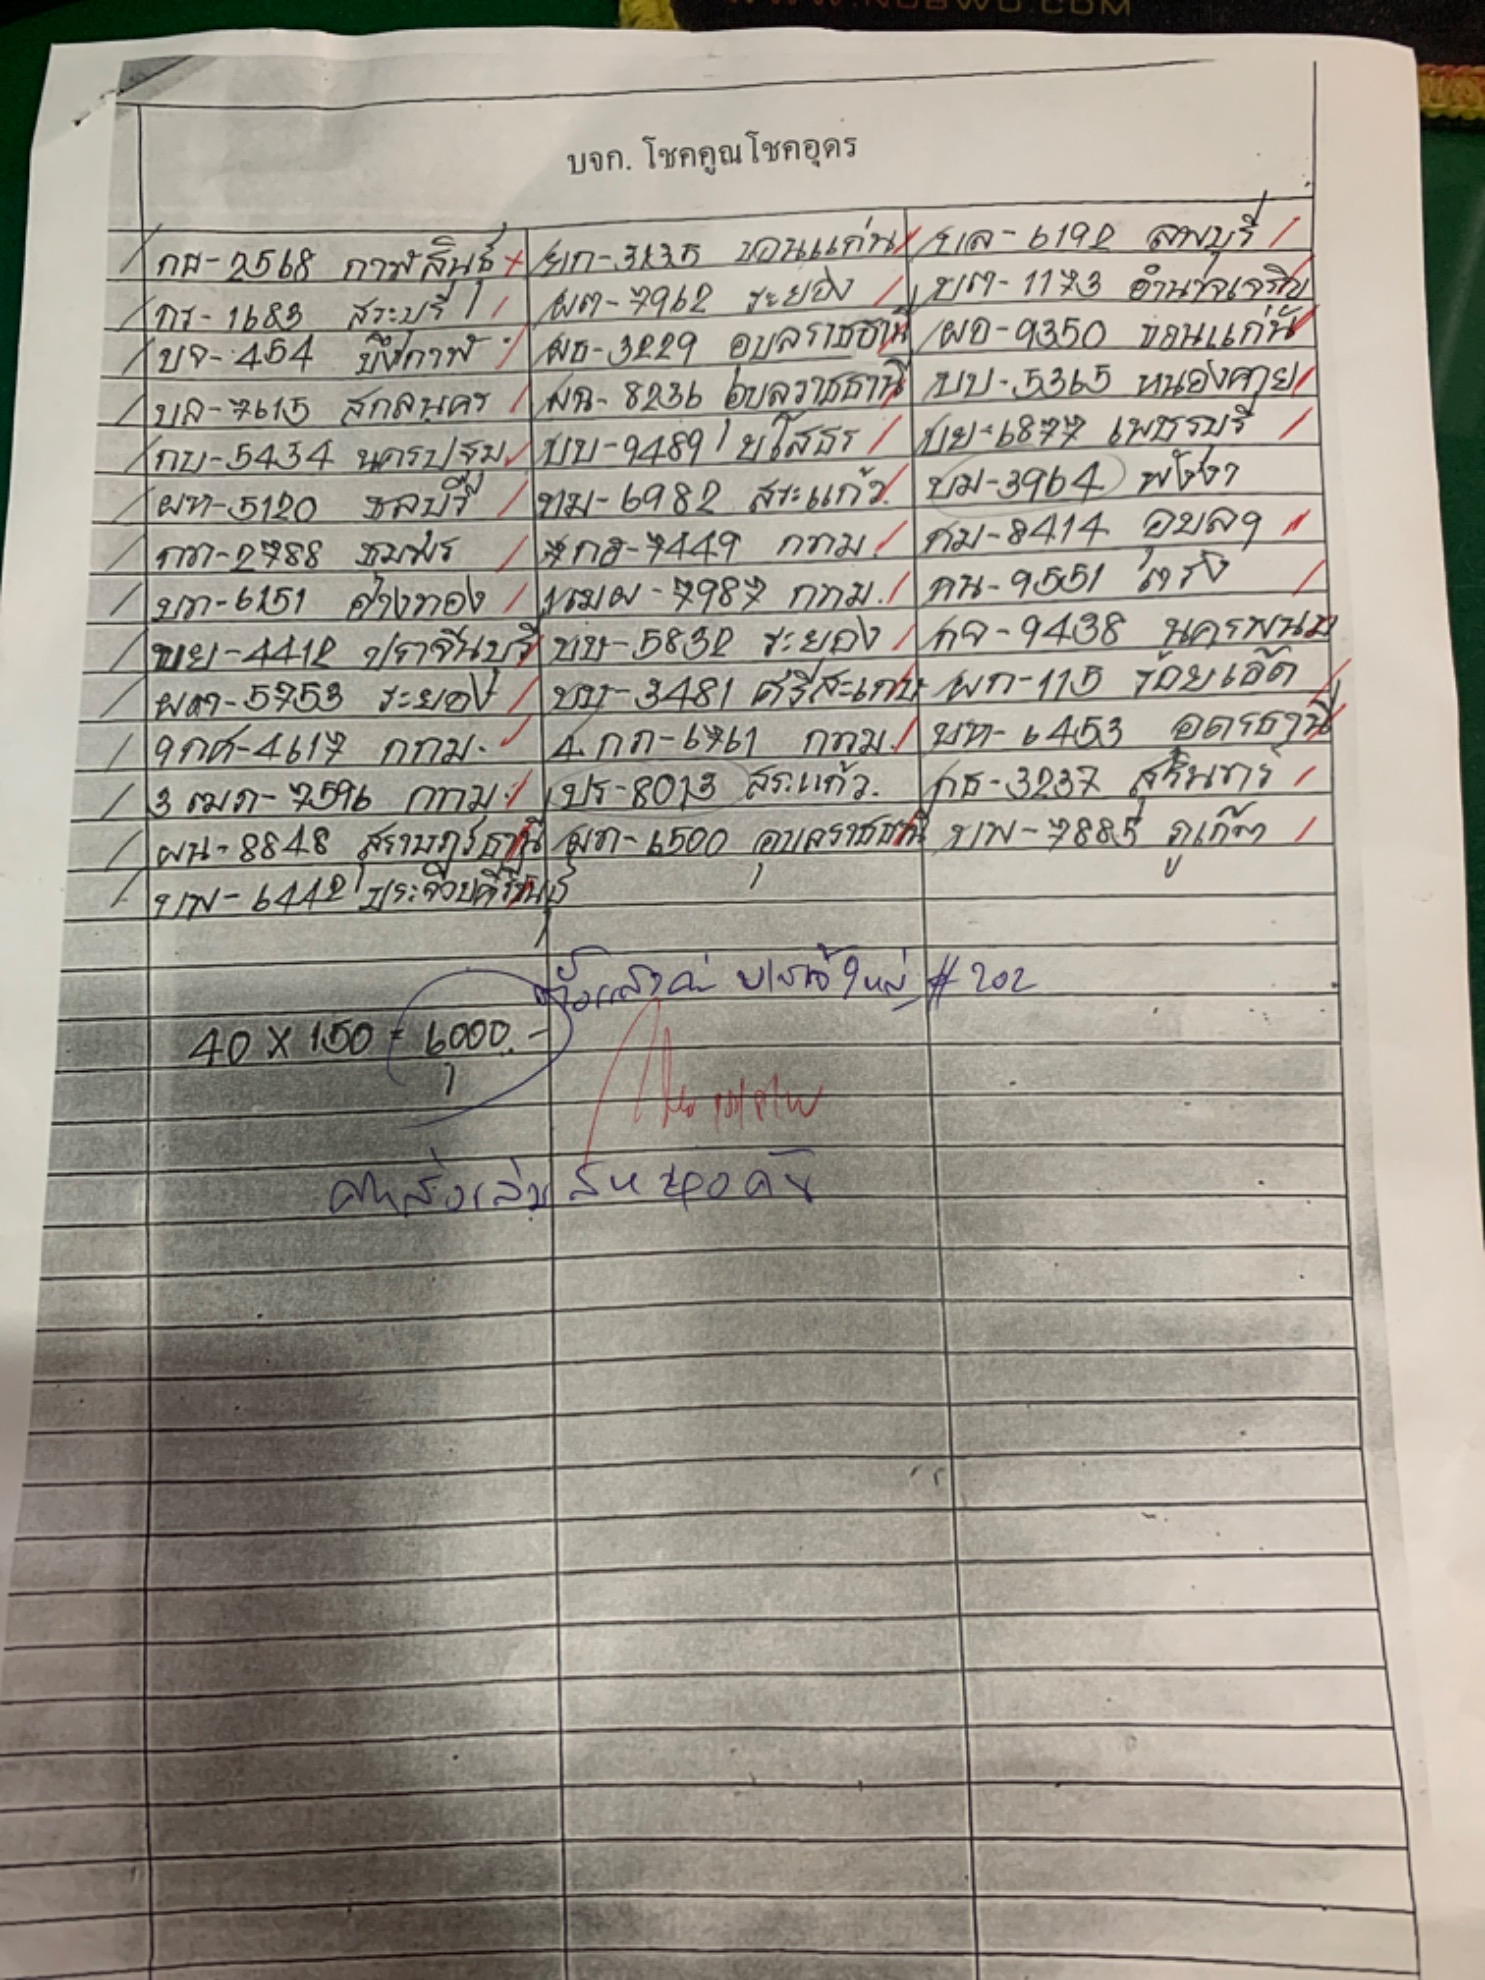 WWW.NUBWO.COM
บจก. โชคคูณโชคอุดร
กส-2568 กาฬสินธุ์ ยก-3135 ขอนแก่น บล-6192 ลพบุรี
กร-1683 สระบุรี ผต-7962 ระยอง บต-1173 อำนาจเจริญ
บจ-454 บึงกาฬ ผธ-3229 อุบลราชธานี ผอ-9350 ขอนแก่น
บล-7615 สกลนคร ผฉ-8236 อุบลราชธานี บป-5365 หนองคาย
กบ-5434 นครปฐม บบ-9489 ยโสธร บย-6877 เพชรบุรี
ผท-5120 ชลบุรี ทม-6982 สระแก้ว. บม-3964 พังงา
กท-2788 ชุมพร 7กอ-7449 กทม. กม-8414 อุบลฯ
บท-6151 อ่างทอง 1ฒผ-7987 กทม. กน-9551 ตรัง
บย-4412 ปราจีนบุรี บษ-5832 ระยอง กจ-9438 นครพนม
ผต-5753 ระยอง บบ-3481 ศรีสะเกษ ผก-115 ร้อยเอ็ด
9กศ-4617 กทม. 4กภ-6761 กทม. บท-6453 อุดรธานี
3ฒภ-7596 กทม. ปร-8013 สระแก้ว. กธ-3237 สุรินทร์
ผน-8848 สุราษฎร์ธานี ผก-6500 อุบลราชธานี บพ-7885 ภูเก็ต
บพ-6442 ประจวบคีรีขันธ์
# 202
40 X 150 = 6000.-